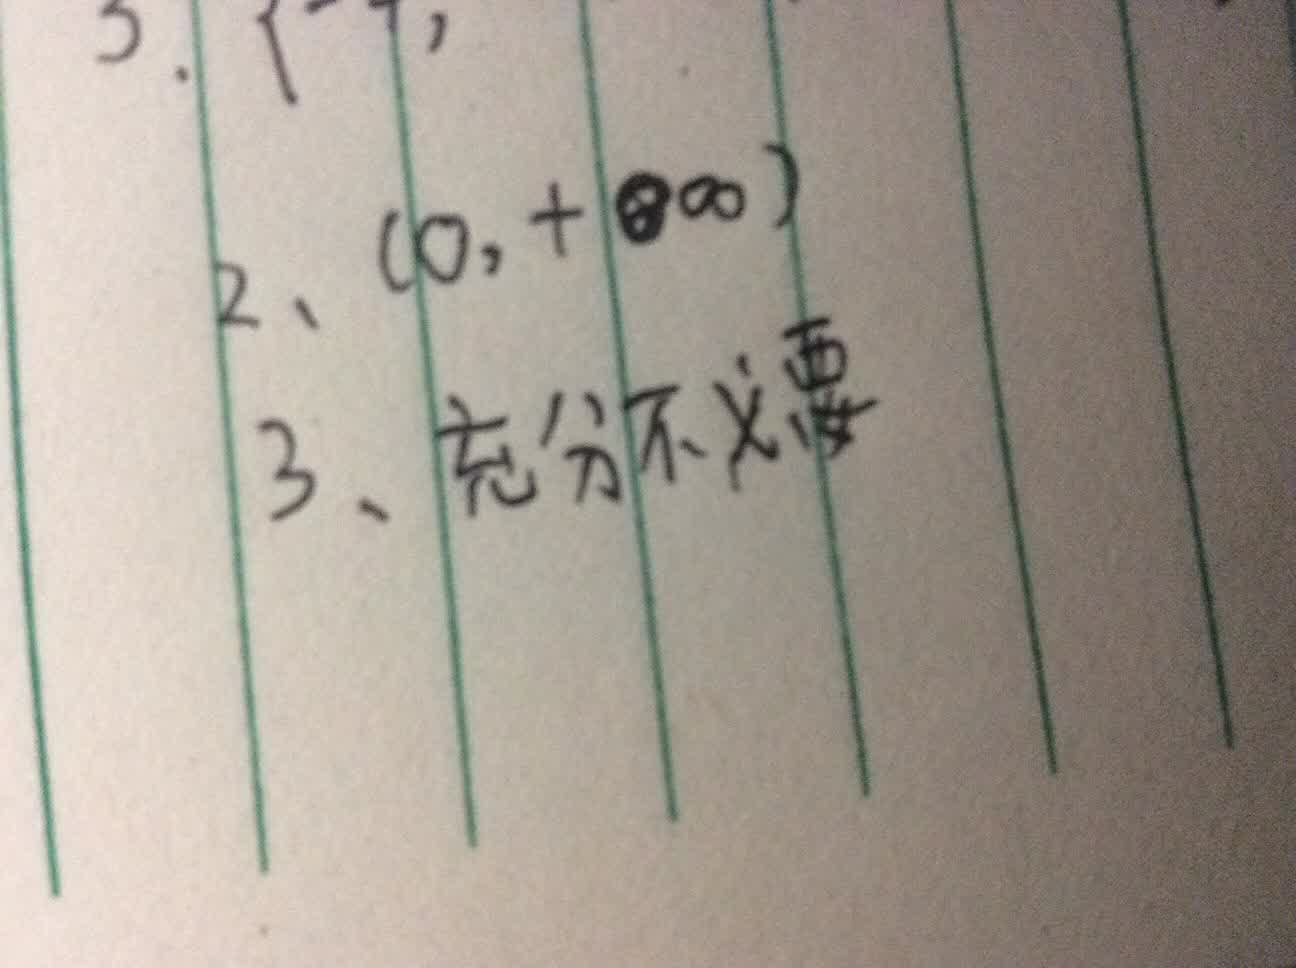 2、(0,+∞)
3、充分不必要